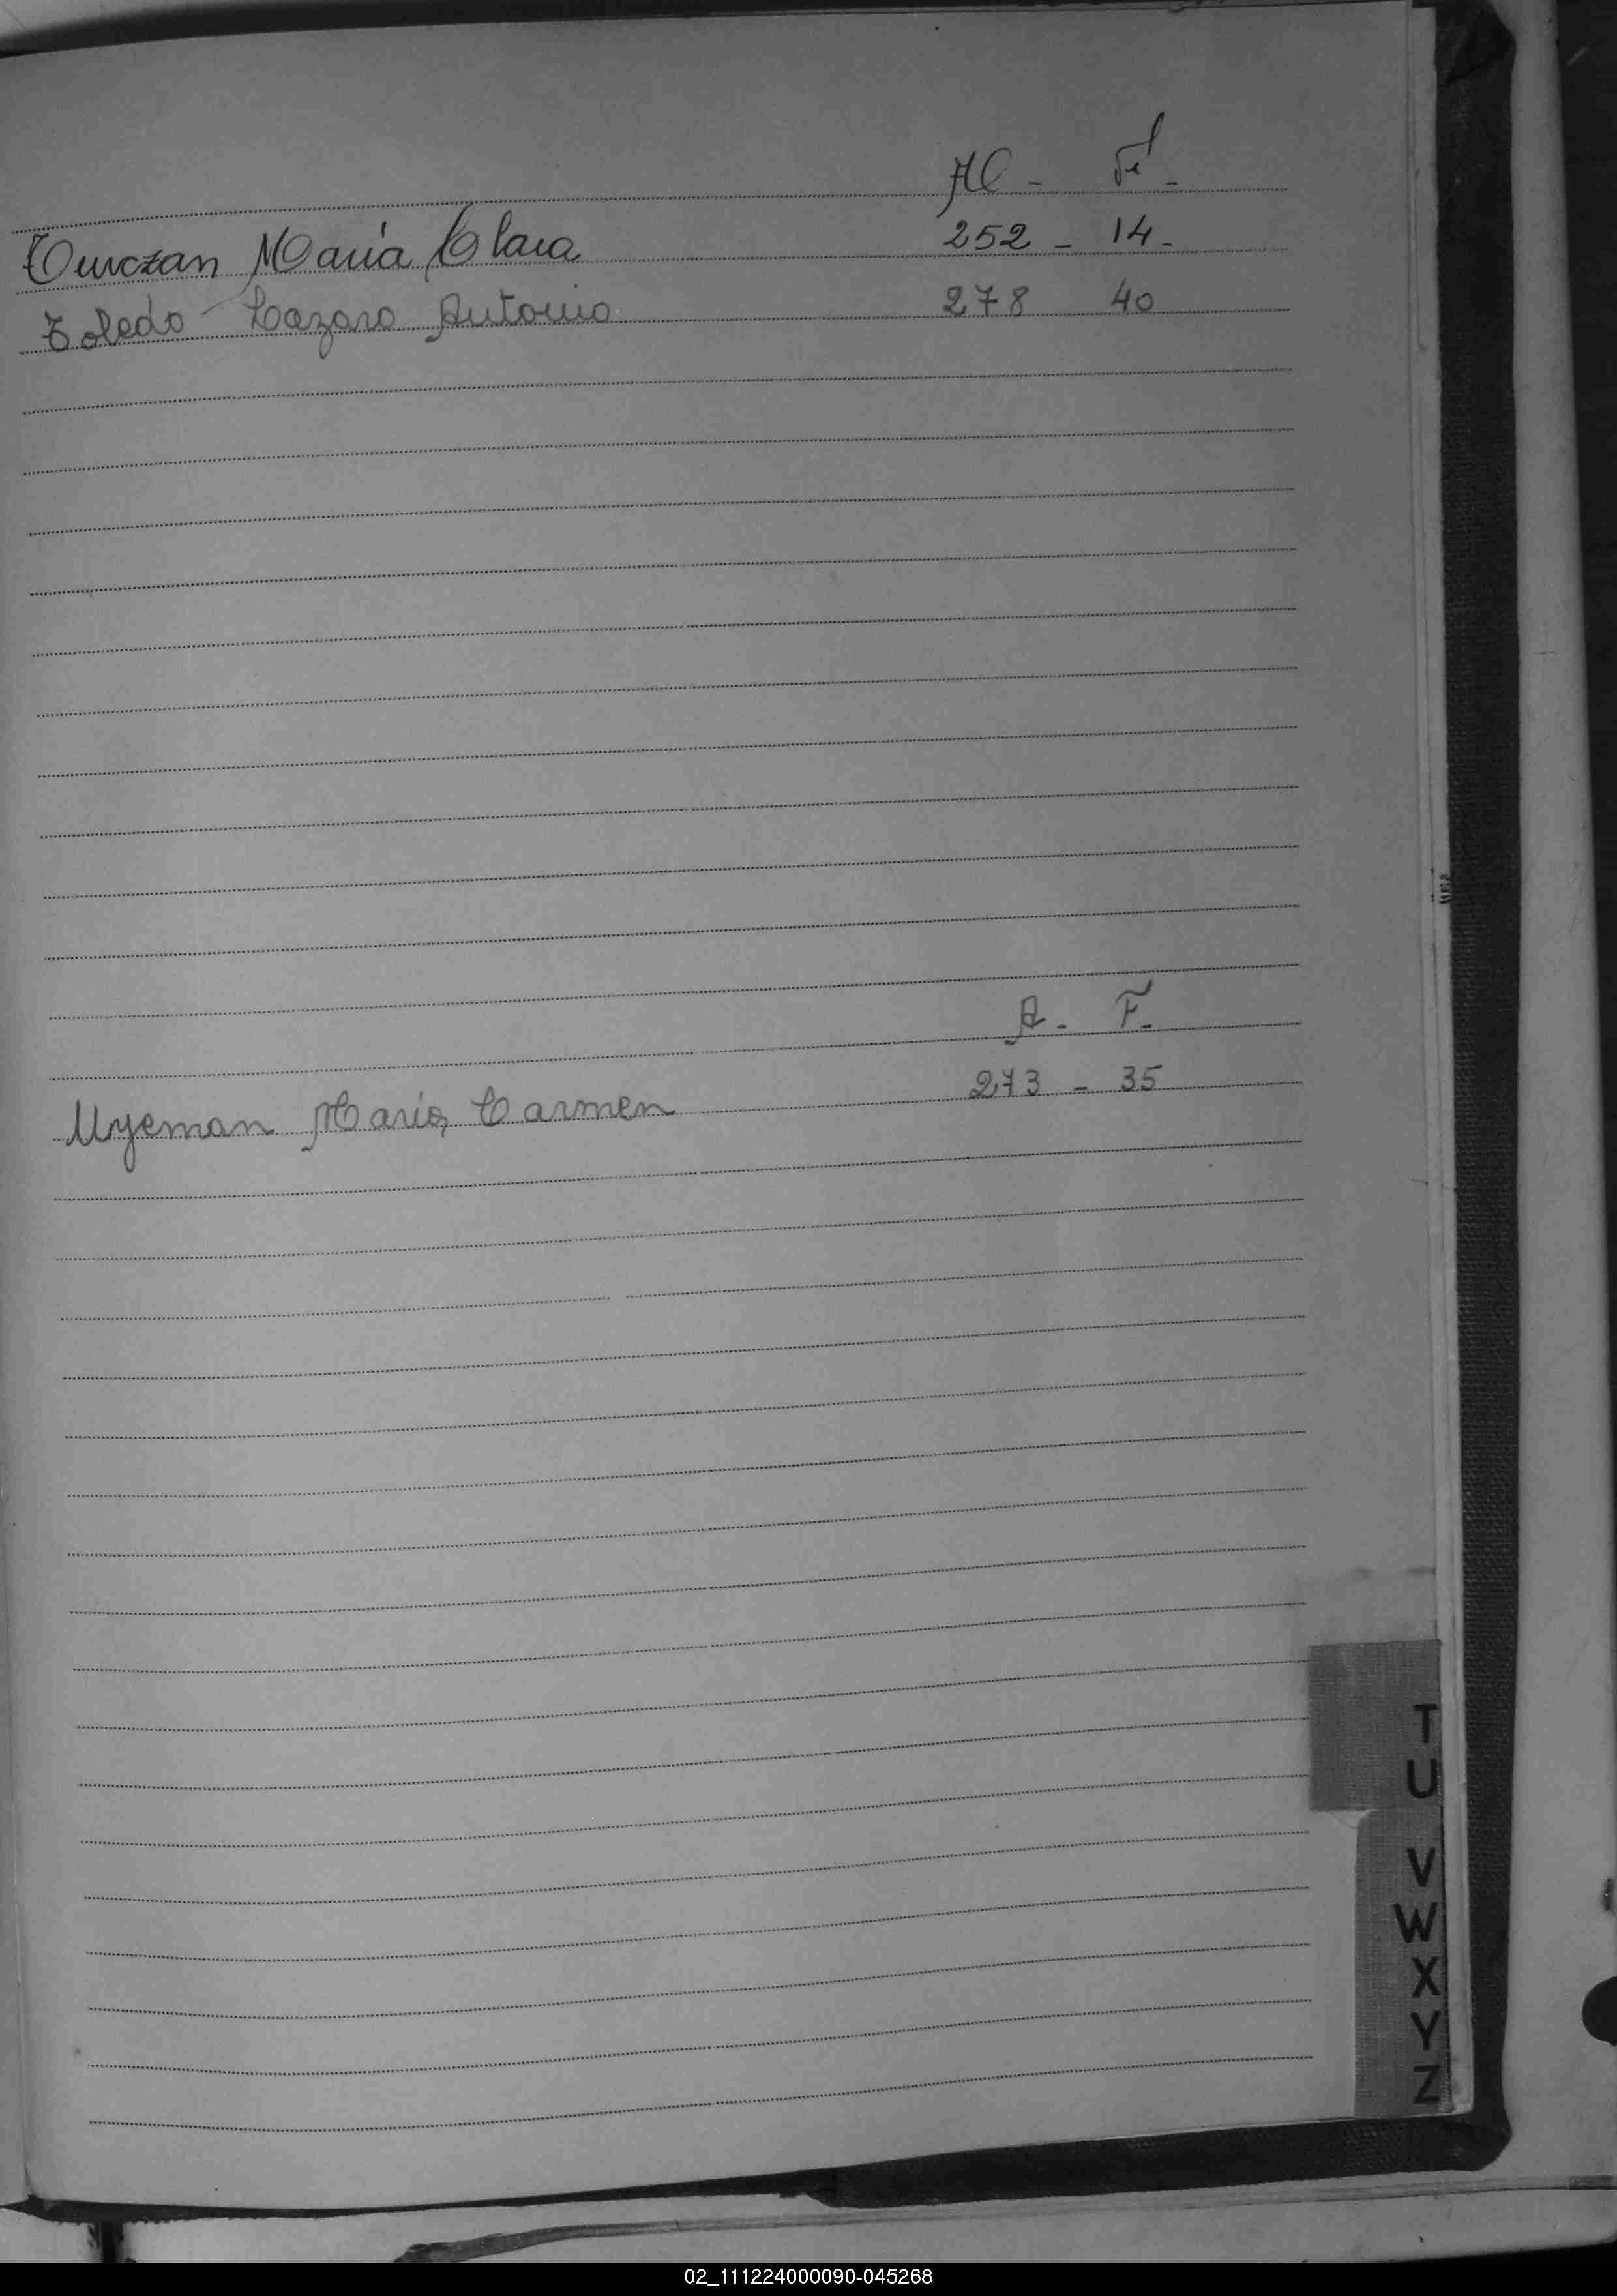 Ac - Fl -
Turczan María Clara 252 - 14 -
Toledo - Lazaro Antonio 278 40
A - F -
Uyeman Maria Carmen 273 - 35
T
U
V
W
X
Y
Z
02_111224000090-045268